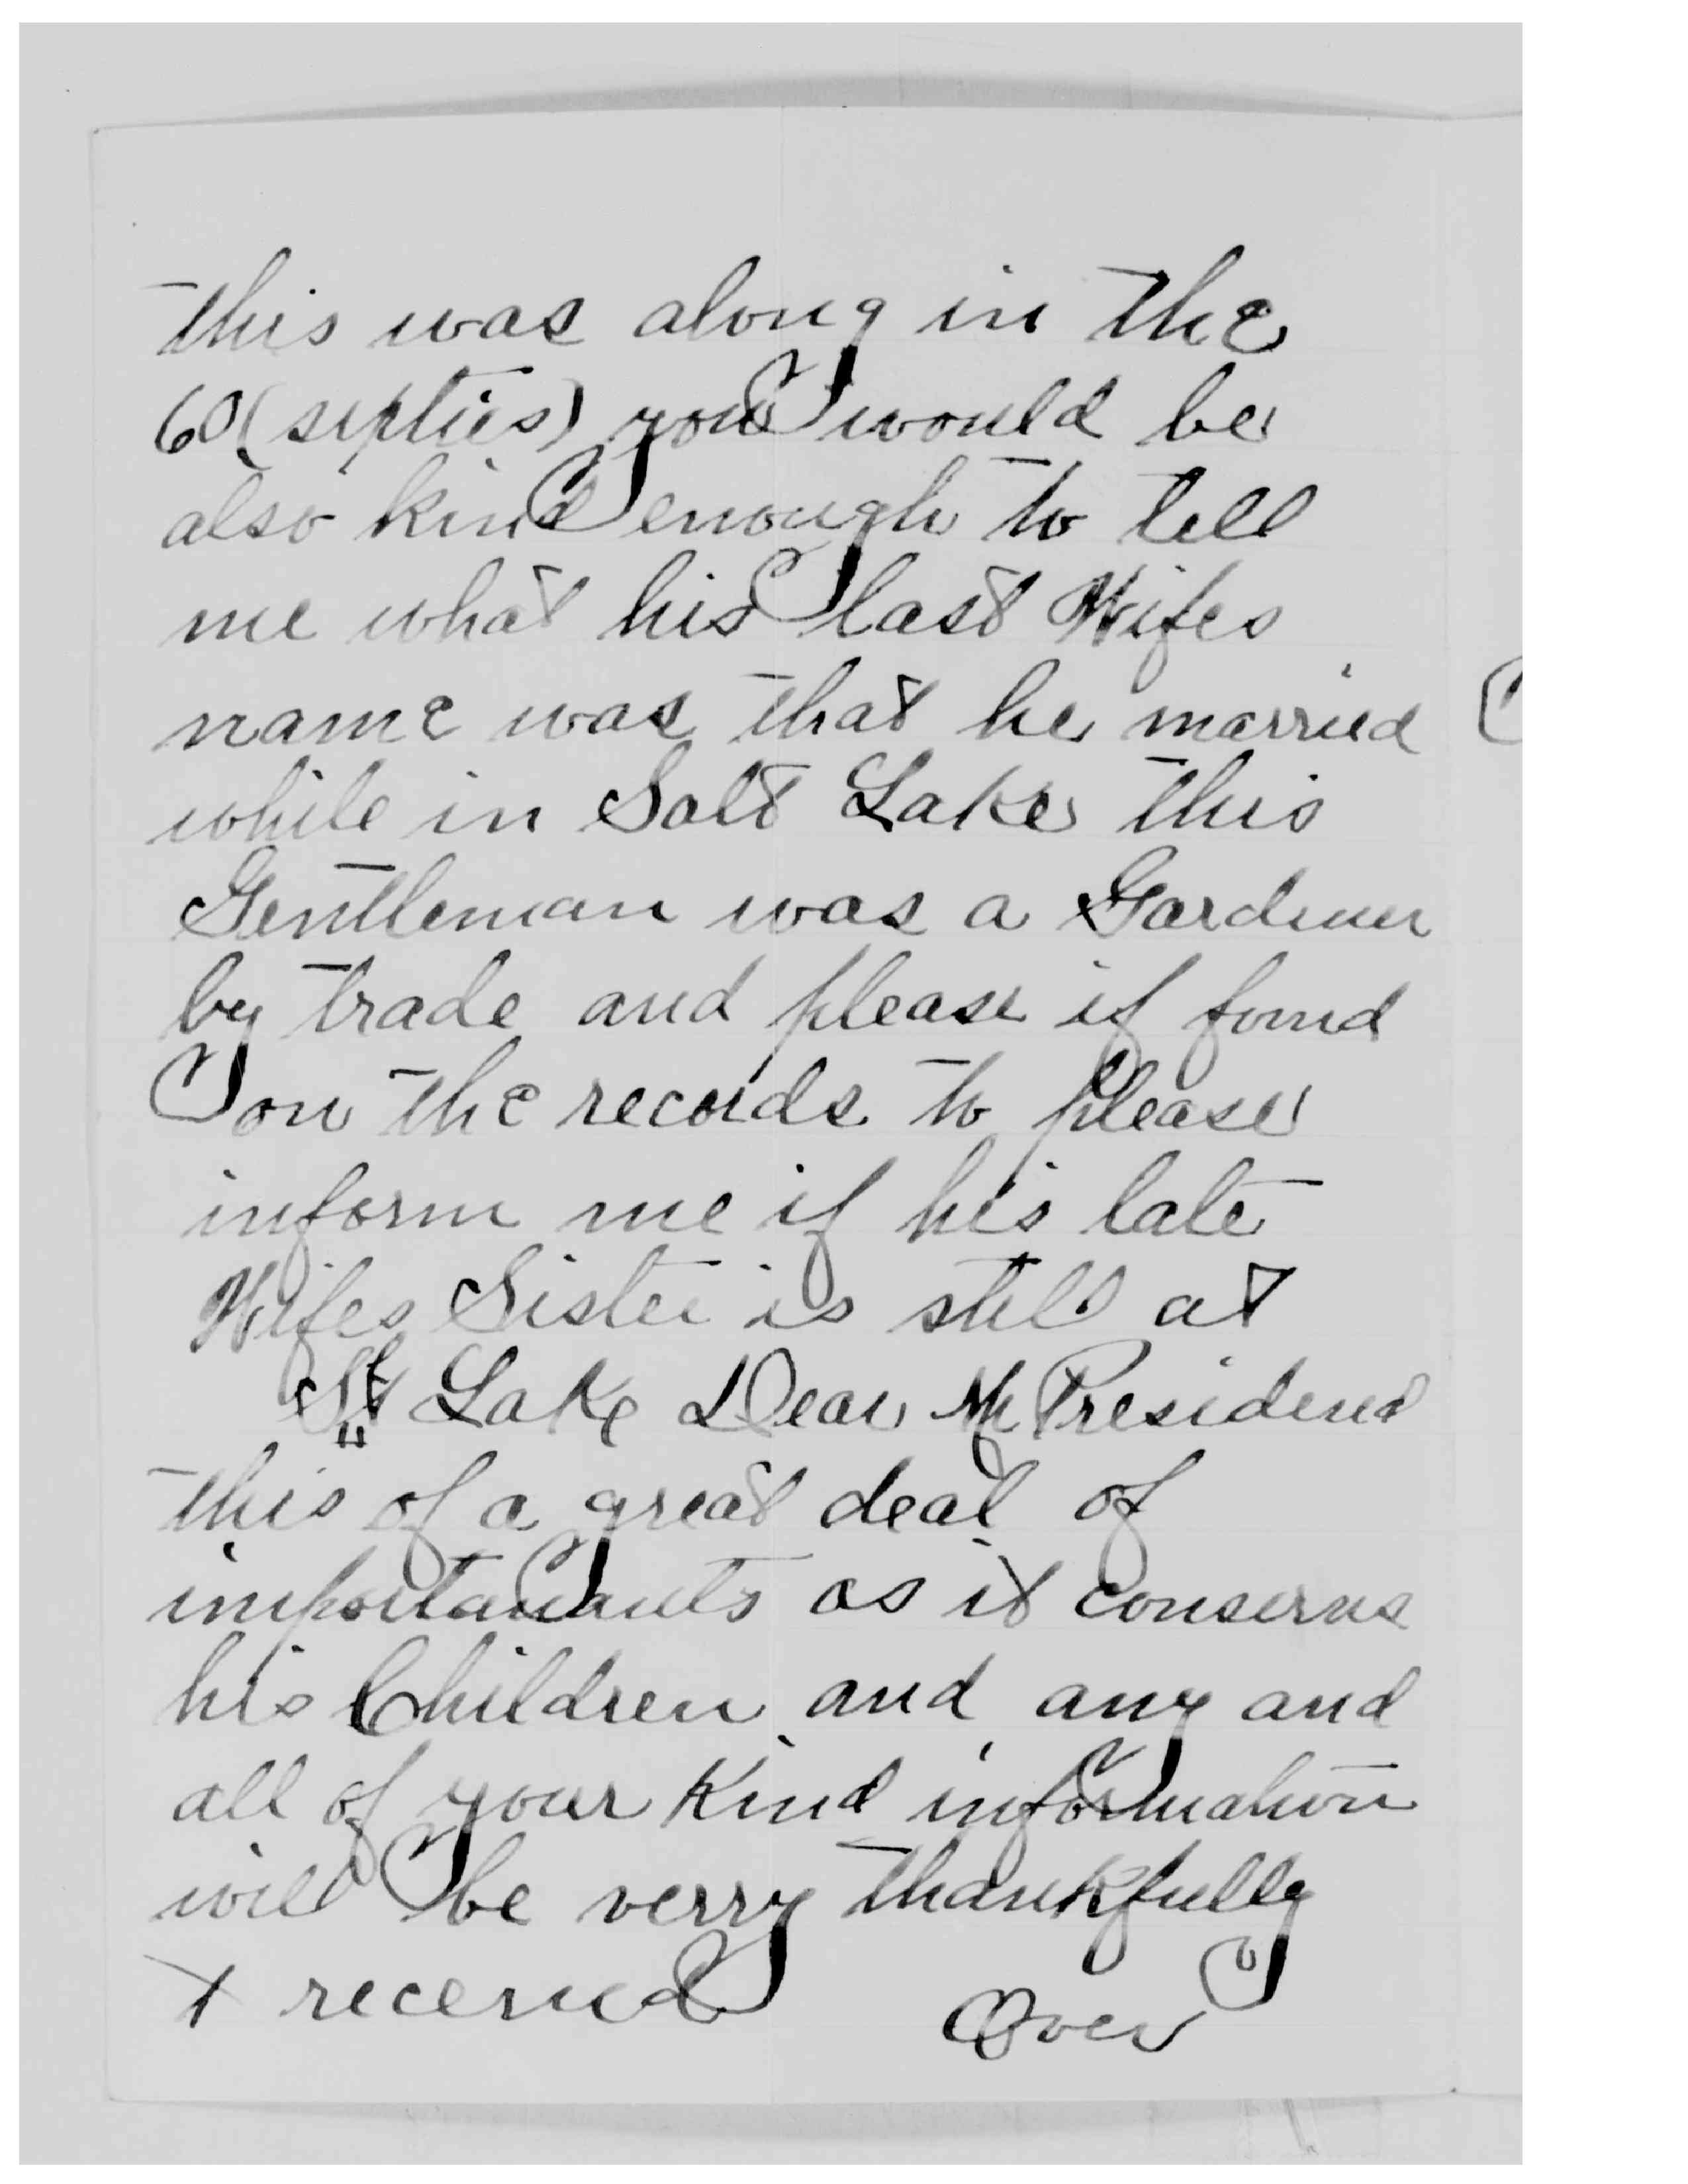 this was along in the
60 (septies) you would be
also kind enough to tell
me what his last Wifes
name was that he married
while in Salt Lake this
Gentleman was a Gardiner
by trade and please if found
on the records to please
inform me if his late
Wifes Sister is still at
St Lake Dear Mr President
this of a great deal of
as it conserns
his Children and any and
all of your Kind information
will be verry thankfully
+ received Over